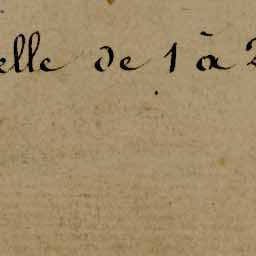 elle de 1 à 2